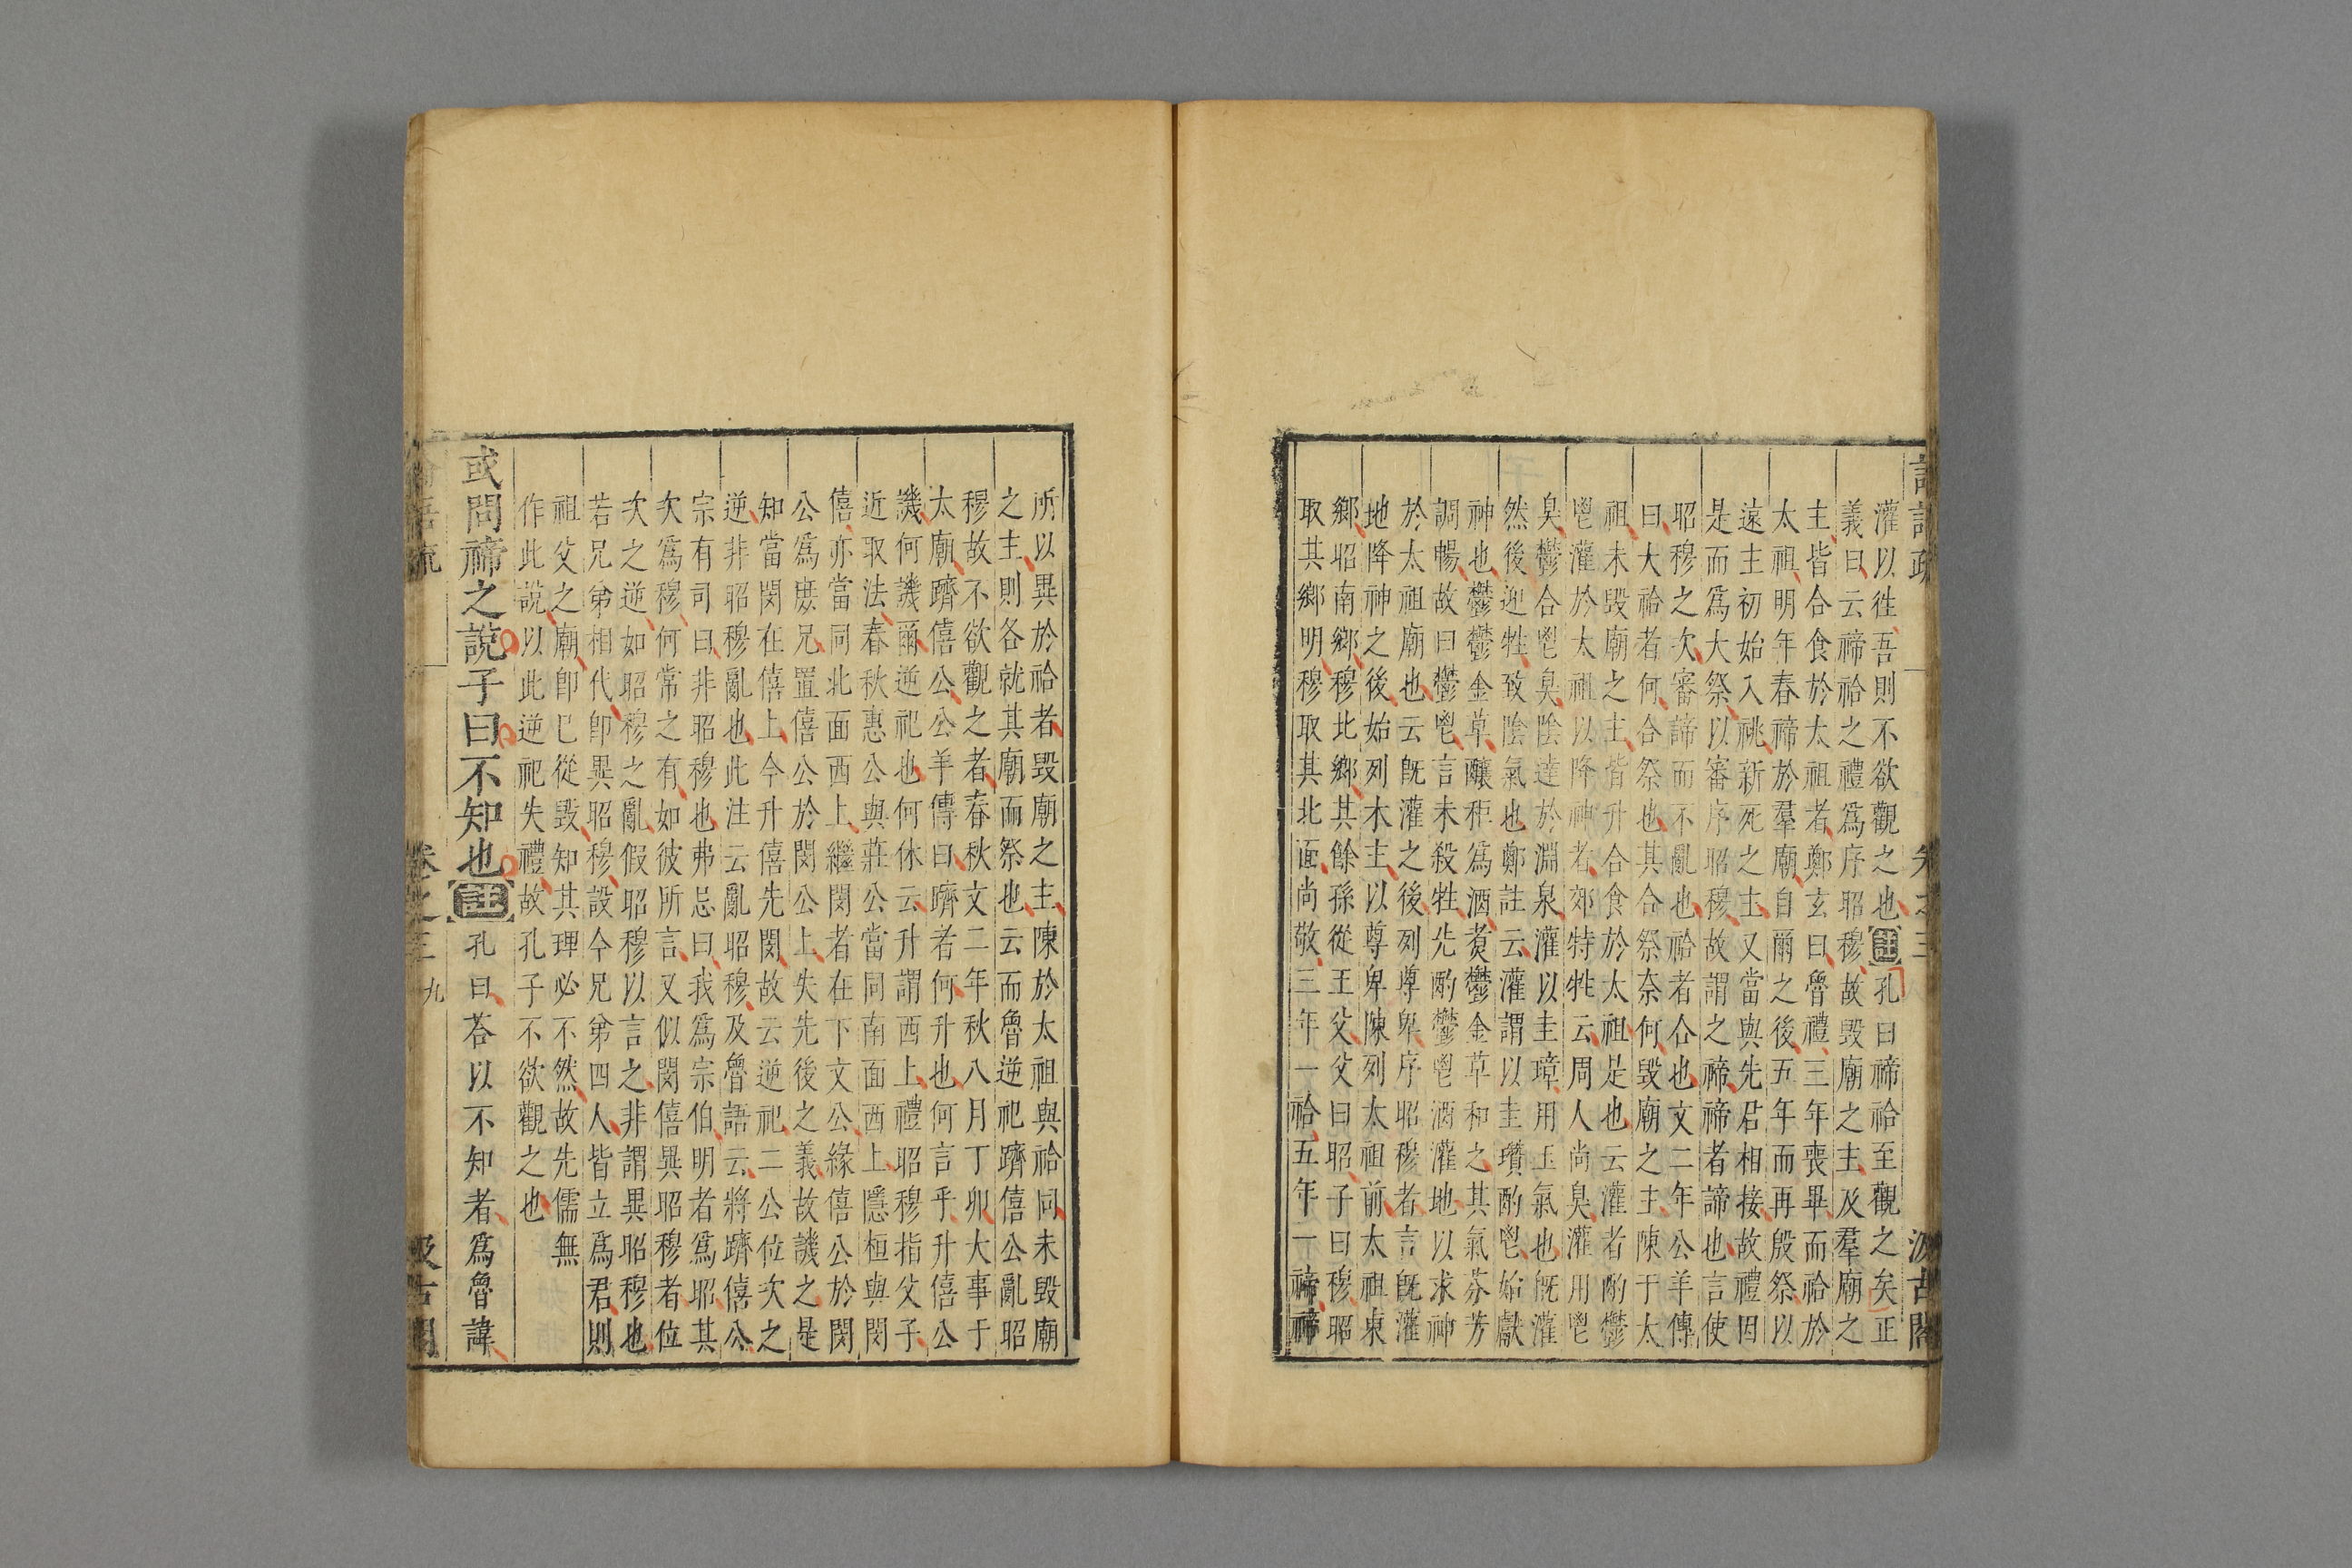 灌以徃吾則不欲觀之也註孔曰禘祫至觀之矣正
義曰云禘祫之禮爲序昭穆故毀廟之主及羣廟之
主皆合食於太祖者鄭玄曰魯禮三年喪畢而祫於
太祖明年春禘於羣廟自爾之後五年而再殷祭以
遠主初始入祧新死之主又當與先君相接故禮因
是而爲大祭以審序昭穆故謂之禘禘者諦也言使
昭穆之次審諦而不亂也祫者合也文二年公羊傳
曰大祫者何合祭也其合祭奈何毀廟之主陳于太
祖未毀廟之主皆升合食於太祖是也云灌者酌鬱
鬯灌於太祖以降神者郊特牲云周人尚臭灌用鬯
臭鬱合鬯臭陰達於淵泉灌以主璋用玉氣也旣灌
然後迎牲致陰氣也鄭註云灌謂以主瓚酌鬯始獻
神也鬱鬱金草釀秬爲酒煑鬱金草和之其氣芬芳
調暢故曰鬱鬯言未殺牲先酌鬱鬯酒灌地以求神
於太祖廟也云旣灌之後列尊卑序昭穆者言旣灌
地降神之後始列木主以尊卑陳列太祖前太祖東
鄉昭南鄉穆北鄉其餘孫從王父父曰昭子曰穆昭
取其鄉明穆取其北面尚敬三年一祫五年一禘禘
所以異於祫者毀廟之主陳於太祖與祫同未毀廟
之主則各就其廟而祭也云而魯逆祀躋僖公亂昭
穆故不欲觀之者春秋文二年秋八月丁卯大事于
太廟躋僖公公羊傳曰躋者何升也何言乎升僖公
譏何譏爾逆祀也何休云升謂西上禮昭穆指父子
近取法春秋惠公與莊公當同南面西上隱桓與閔
僖亦當同北面西上繼閔者在下文公緣僖公於閔
公爲庶兄置僖公於閔公上失先後之義故譏之是
知當閔在僖上今升僖先閔故云逆祀二公位次之
逆非昭穆亂也此注云亂昭穆及魯語云將躋僖公
宗有司曰非昭穆也弗忌曰我爲宗伯明者爲昭其
次爲穆何常之有如彼所言又似閔僖異昭穆者位
次之逆如昭穆之亂假昭穆以言之非謂異昭穆也
若兄弟相代卽異昭穆設今兄弟四人皆立爲君則
祖父之廟卽已從毀知其理必不然故先儒無
作此說以此逆祀失禮故孔子不欲觀之也
或問禘之說子曰不知也註孔曰荅以不知者爲魯諱
卷之三
九
汲古閣